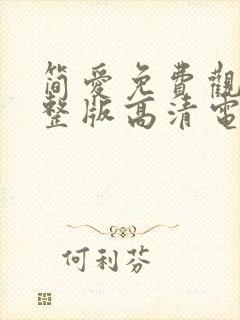 简爱免費觀
整版高清電
何利芬